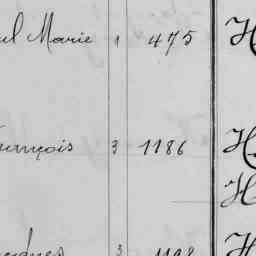 Marie 1 475 H
François 3 1186 H
H
3 1198 H